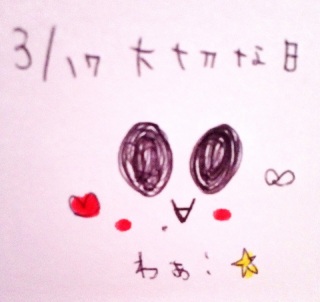 3/17 大切な日
わぁ!